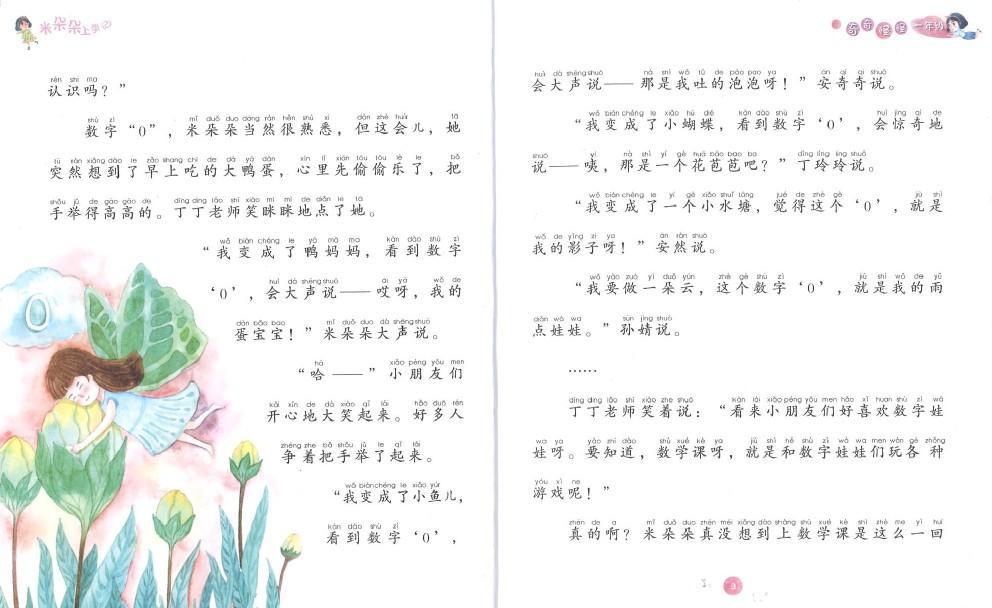 米朵朵上学2
rèn shi ma
认识吗？”
shù zì mǐ duǒ duo dāng rán hěn shú xī dàn zhè huìr tā
数字“0”，米朵朵当然很熟悉，但这会儿，她
tū rán xiǎng dào le zǎo shang chī de dà yā dàn xīn lǐ xiān tōu tōu lè le bǎ
突然想到了早上吃的大鸭蛋，心里先偷偷乐了，把
shǒu jǔ de gāo gāo de dīng dīng lǎo shī xiào mī mī de diǎn le tā
手举得高高的。丁丁老师笑眯眯地点了她。
wǒ biàn chéng le yā mā ma kàn dào shù zì
“我变成了鸭妈妈，看到数字
huì dà shēng shuō āi yā wǒ de
‘0’，会大声说——哎呀，我的
dàn bǎo bao mǐ duǒ duo dà shēng shuō
蛋宝宝！”米朵朵大声说。
hā xiǎo péng yǒu men
“哈——”小朋友们
kāi xīn de dà xiào qǐ lái hǎo duō rén
开心地大笑起来。好多人
zhēng zhe bǎ shǒu jǔ le qǐ lái
争着把手举了起来。
wǒ biàn chéng le xiǎo yúr
“我变成了小鱼儿，
kàn dào shù zì
看到数字‘0’，
奇奇怪怪一年级
huì dà shēng shuō nà shì wǒ tǔ de pào pao ya ān qí qí shuō
会大声说——那是我吐的泡泡呀！”安奇奇说。
wǒ biàn chéng le xiǎo hú dié kàn dào shù zì huì jīng qí de
“我变成了小蝴蝶，看到数字‘0’，会惊奇地
shuō yí nà shì yí gè huā bāo bao ba dīng líng líng shuō
说——咦，那是一个花苞苞吧？”丁玲玲说。
wǒ biàn chéng le yí gè xiǎo shuǐ táng jué de zhè ge jiù shì
“我变成了一个小水塘，觉得这个‘0’，就是
wǒ de yǐng zi ya ān rán shuō
我的影子呀！”安然说。
wǒ yào zuò yì duǒ yún zhè gè shù zì jiù shì wǒ de yǔ
“我要做一朵云，这个数字‘0’，就是我的雨
diǎn wá wa sūn jìng shuō
点娃娃。”孙婧说。
……
dīng dīng lǎo shī xiào zhe shuō kàn lái xiǎo péng yǒu men hǎo xǐ huan shù zì wá
丁丁老师笑着说：“看来小朋友们好喜欢数字娃
wa ya yào zhī dào shù xué kè ya jiù shì hé shù zì wá wa men wán gè zhǒng
娃呀。要知道，数学课呀，就是和数字娃娃们玩各种
yóu xì ne
游戏呢！”
zhēn de a mǐ duǒ duo zhēn méi xiǎng dào shàng shù xué kè shì zhè me yì huí
真的啊？米朵朵真没想到上数学课是这么一回
3